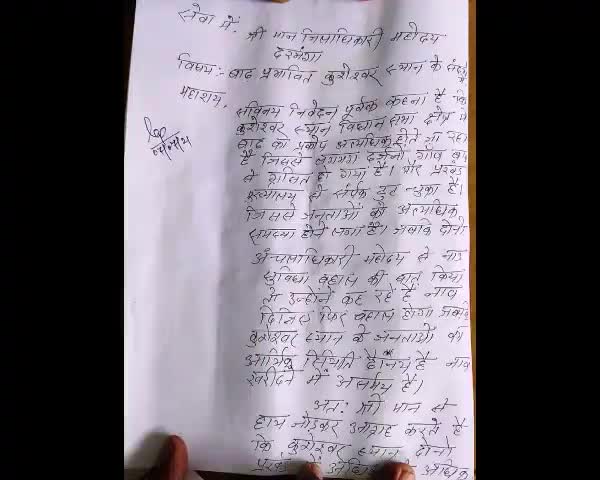 सेवा में,
श्री मान जिलाधिकारी महोदय
दरभंगा
विषय:- बाढ़ प्रभावित कुशेश्वर स्थान के संदर्भ में
महाशय,
सविनय निवेदन पूर्वक कहना है कि
कुशेश्वर स्थान विधान सभा क्षेत्र में
बाढ़ का प्रकोप अत्यधिक होते जा रहा
है जिससे लगभग दर्जनो गाँव बाढ़
से ग्रसित हो गया है। और प्रखंड
मुख्यालय से संपर्क टुट चुका है।
जिससे जनताओं को अत्यधिक
समस्या होने लगा है। जबकि दोनो
अंचलाधिकारी महोदय से नाव
सुविधा बहाल की बात किया
तो उन्होंने कह रहे है नाव
दिजिए फिर बहाल होगा जबकि
कुशेश्वर स्थान के जनताओं की
आर्थिक स्थिति दैनिय है नाव
खरीदने में असर्मथ है।
अत: श्री मान से
हाथ जोड़कर आग्रह करते है
कि कुशेश्वर स्थान दोनो
प्रखंड में अधिक से अधिक